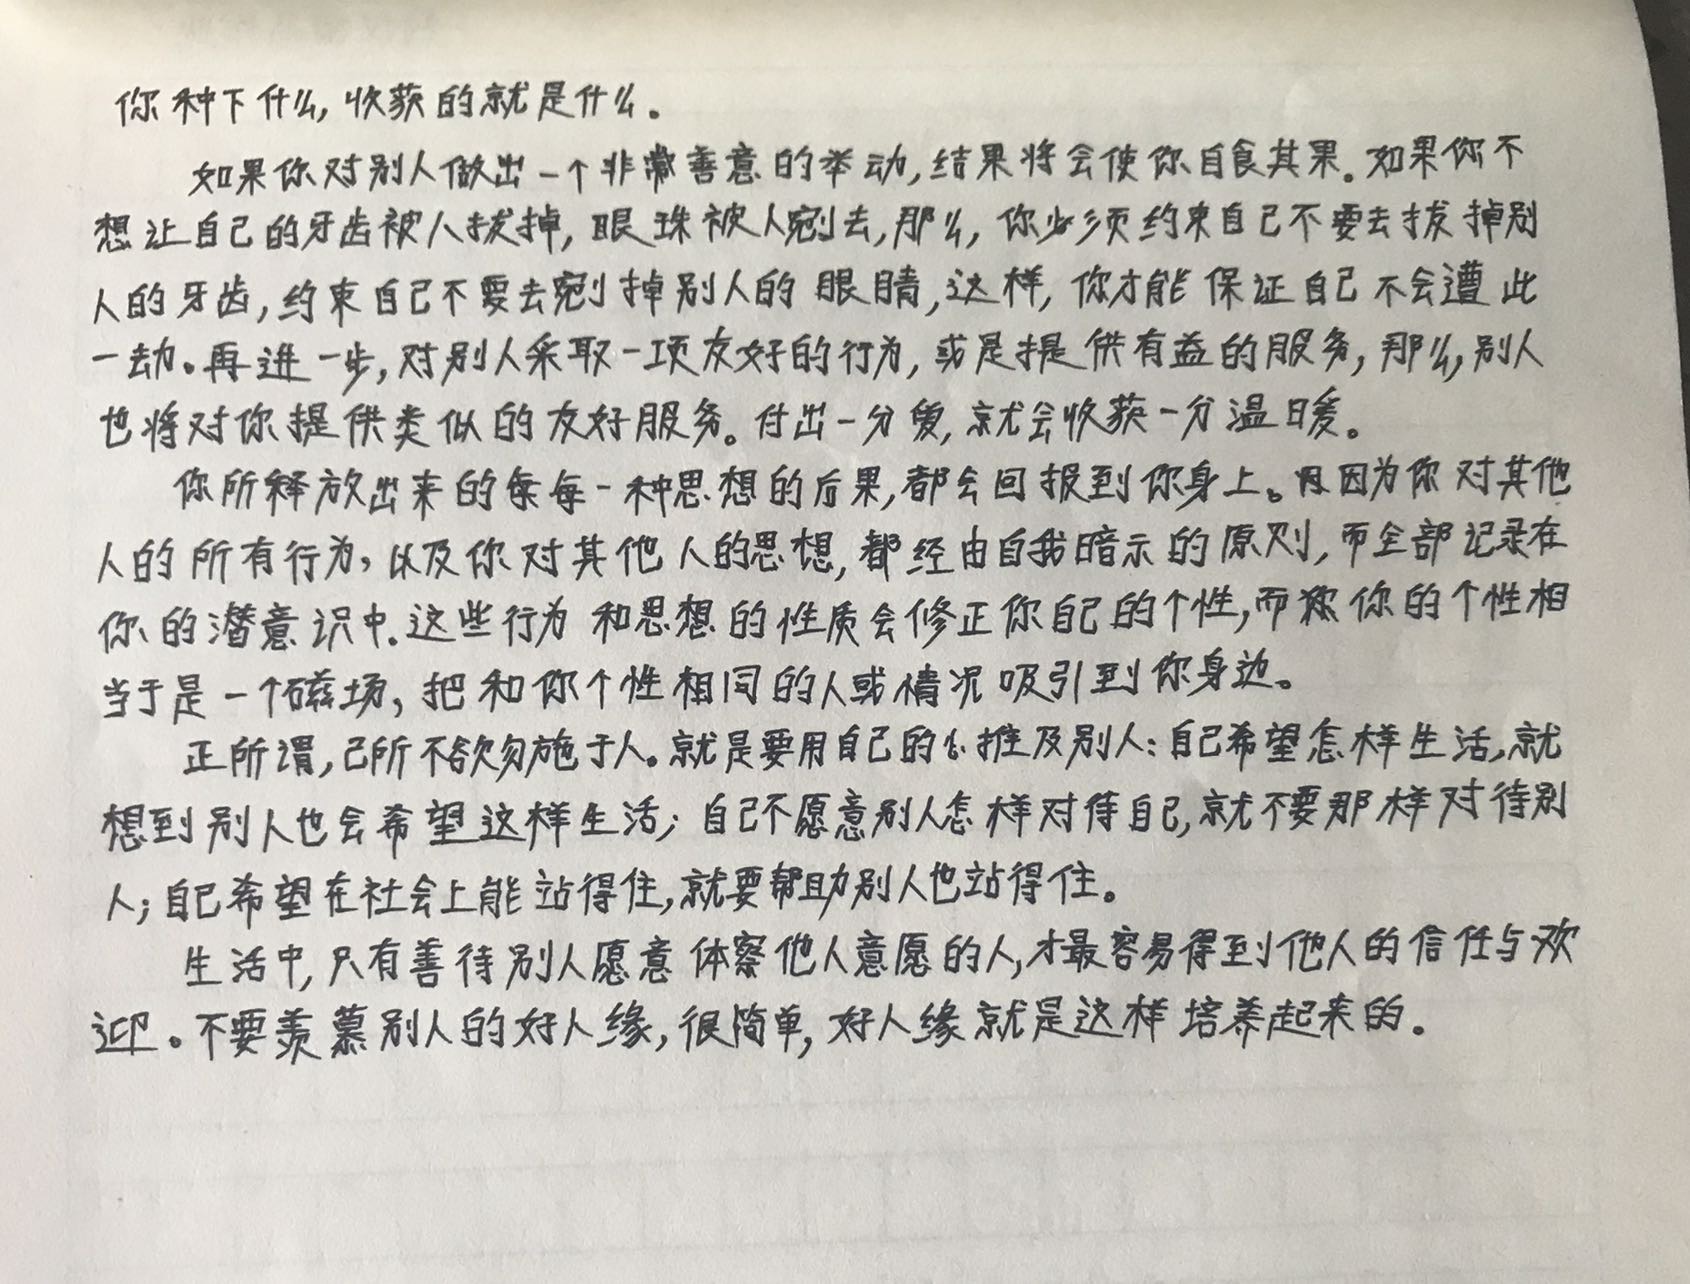 你种下什么,收获的就是什么。
如果你对别人做出一个非常善意的举动,结果将会使你自食其果。如果你不
想让自己的牙齿被人拔掉,眼珠被人剜去,那么,你必须约束自己不要去拔掉别
人的牙齿,约束自己不要去剜掉别人的眼睛,这样,你才能保证自己不会遭此
一劫。再进一步,对别人采取一项友好的行为,或是提供有益的服务,那么,别人
也将对你提供类似的友好服务。付出一分爱,就会收获一分温暖。
你所释放出来的每一种思想的后果,都会回报到你身上。因为你对其他
人的所有行为,以及你对其他人的思想,都经由自我暗示的原则,而全部记录在
你的潜意识中.这些行为和思想的性质会修正你自己的个性,而你的个性相
当于是一个磁场,把和你个性相同的人或情况吸引到你身边。
正所谓,己所不欲勿施于人。就是要用自己的心推及别人:自己希望怎样生活,就
想到别人也会希望这样生活;自己不愿意别人怎样对待自己,就不要那样对待别
人;自己希望在社会上能站得住,就要帮助别人也站得住。
生活中,只有善待别人愿意体察他人意愿的人,才最容易得到他人的信任与欢
迎。不要羡慕别人的好人缘,很简单,好人缘就是这样培养起来的。